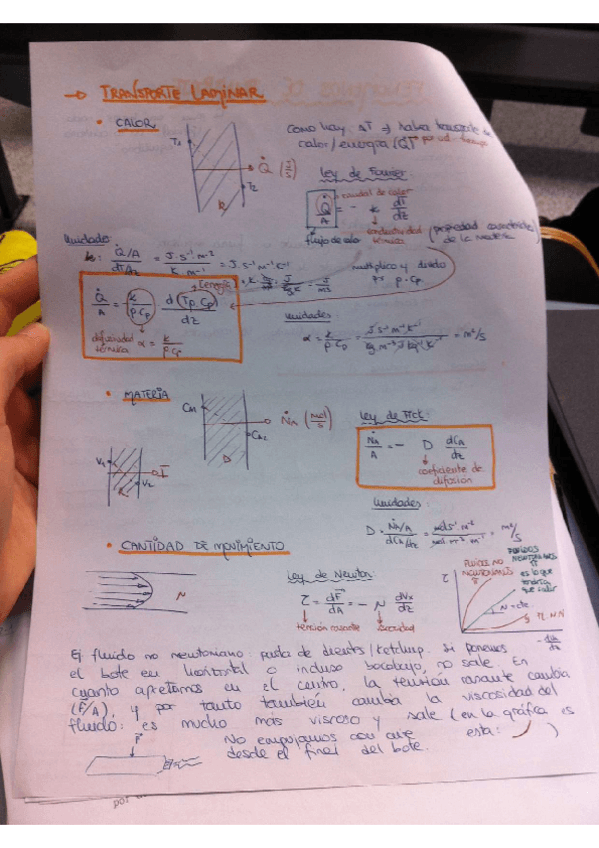 → TRANSPORTE LAMINAR
• CALOR
T₁
T₂
k
Q̇ (J/s)
como hay ΔT ⇒ habrá transporte de
calor/energía (Q̇) por ud. tiempo
Ley de Fourier
caudal de calor
Q̇/A = - k dT/dz
flujo de calor
conductividad térmica
(propiedad característica de la materia)
Unidades
k: Q̇/A / dT/dz = J·s⁻¹·m⁻² / K·m⁻¹ = J·s⁻¹m⁻¹K⁻¹
multiplico y divido
por ρ·Cp
Q̇/A = - k/ρCp d(TρCp)/dz
difusividad térmica α = k/ρCp
Unidades:
α = k/ρCp = J s⁻¹m⁻¹K⁻¹ / kg m⁻³ J kg⁻¹K⁻¹ = m²/s
• MATERIA
CA1
CA2
D
ṄA (mol/s)
Ley de Fick:
ṄA/A = - D dCA/dz
coeficiente de
difusión
V1
V2
Unidades:
D = ṄA/A / dCA/dz = mol s⁻¹ m⁻² / mol m⁻³ m⁻¹ = m²/s
• CANTIDAD DE MOVIMIENTO
Ley de Newton
τ = dF/dA = - μ dVx/dz
tensión cortante
viscosidad
τ
FLUIDOS NO
NEWTONIANOS
FLUIDOS
NEWTONIANOS
es lo que
tendría
que salir
μ = cte.
F. N.N
Ej fluido no newtoniano: pasta de dientes/ketchup. Si ponemos
el bote en horizontal o incluso bocabajo, no sale. En
cuanto apretamos en el centro, la tensión cortante cambia
(F/A), y por tanto también cambia la viscosidad del
fluido: es mucho más viscoso y sale (en la gráfica es
esta: )
F
No empujamos con aire
desde el final del bote.
por